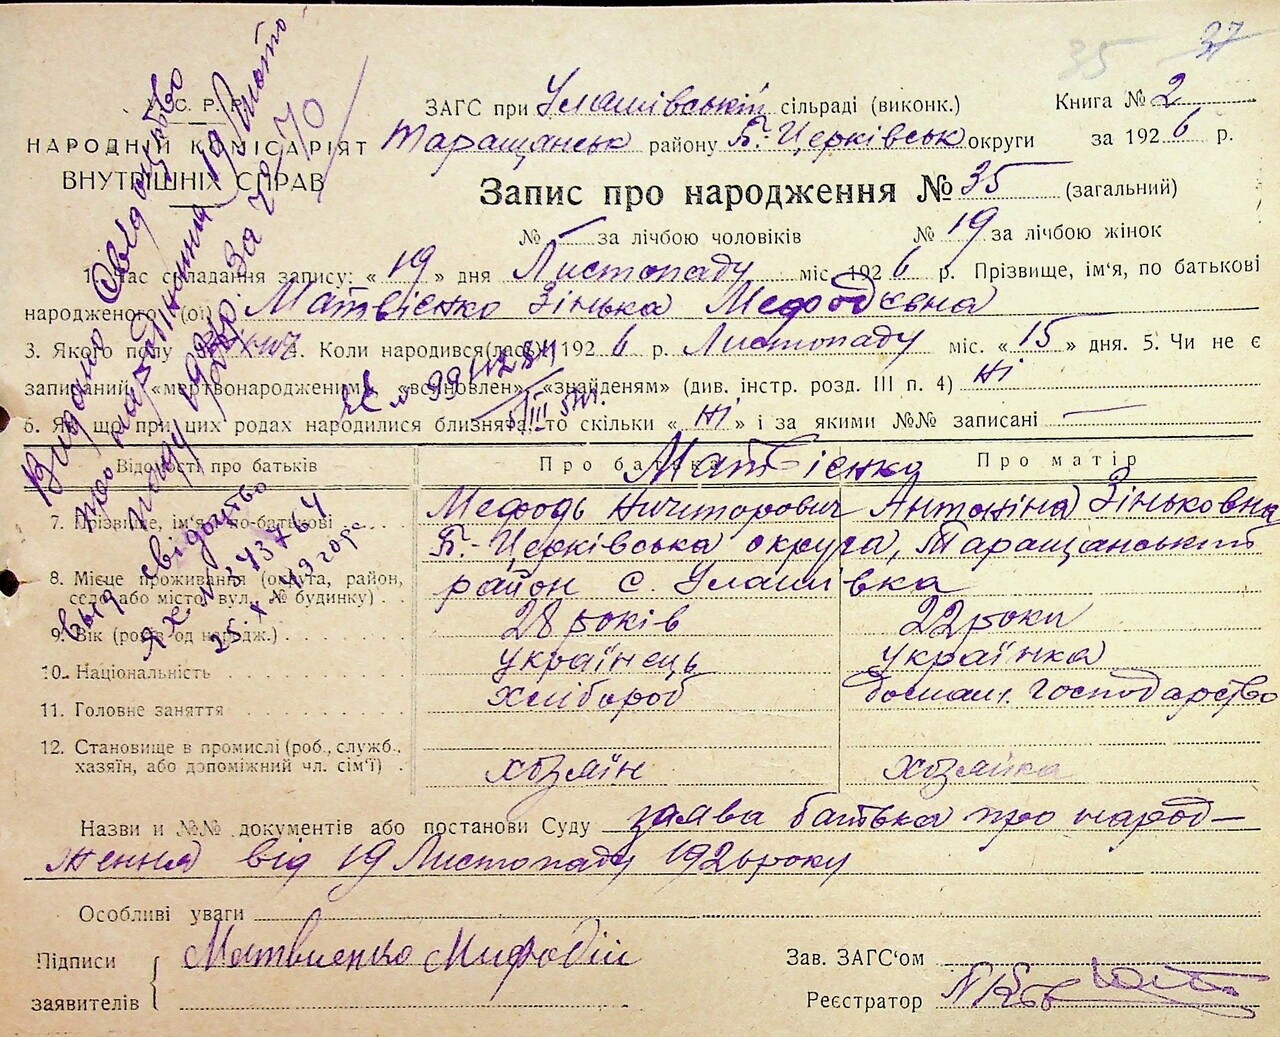 35 37
У. С. Р. Р.
НАРОДНІЙ КОМІСАРІЯТ
ВНУТРІШНІХ СПРАВ
ЗАГС при Улашівській сільраді (виконк.) Книга № 2
Таращанськ району Б.-Церківськ округи за 1926 р.
Запис про народження № 35 (загальний)
№ за лічбою чоловіків № 19 за лічбою жінок
1. Час складання запису: « 19 » дня Листопаду міс. 1926 р. Прізвище, ім'я, по батькові
народженого (ої) Матвієнко Зінька Мефодєвна
3. Якого полу 4. Коли народився(лась) 1926 р. Листопаду міс. « 15 » дня. 5. Чи не є
записаний «мертвонародженим», «всиновлен», «знайденям» (див. інстр. розд. III п. 4) ні
6. Як що при цих родах народилися близнята, то скільки « ні » і за якими №№ записані —
Відомості про батьків Про батька Про матір
Матвієнко
7. Прізвище, ім'я, по-батькові Мефодь Ничипорович Антоніна Зіньковна
Б.-Церківська округа, Таращанський
8. Місце проживання (округа, район, район с. Улашівка
село або місто, вул., № будинку)
9. Вік (років од народж.) 28 років 22 роки
10. Національність українець українка
11. Головне заняття хлібороб домашн. господарство
12. Становище в промислі (роб., служб.,
хазяїн, або допоміжний чл. сім'ї) хозяїн хозяйка
Назви и №№ документів або постанови Суду заява батька про народ-
ження від 19 Листопаду 1926 року
Особливі уваги
Підписи Матвиенко Мифодій Зав. ЗАГС'ом
заявителів Реєстратор
Видано Свідоцтво
про народження 19 Листо
паду 1926 р. За № 70
выд свідоцтво
ЯХ № 373764
25. X 49 года